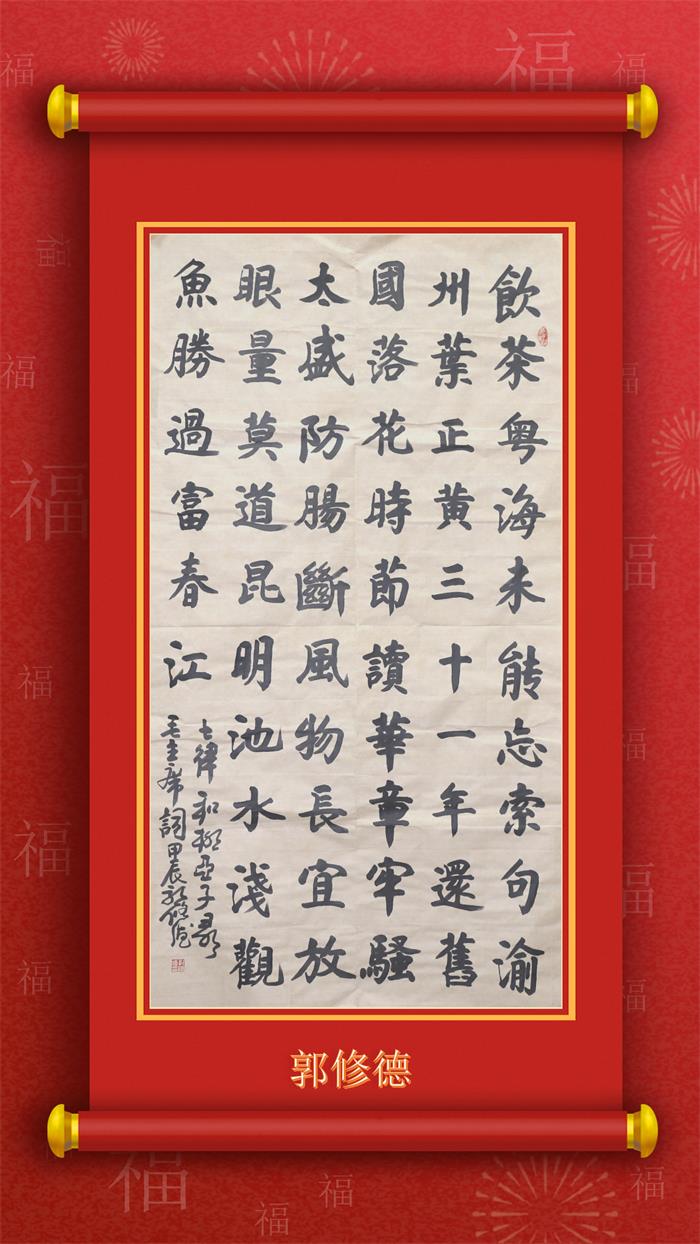 飲茶粤海未能忘索句渝
州葉正黄三十一年還舊
國落花時節讀華章牢騷
太盛防腸斷風物長宜放
眼量莫道昆明池水淺觀
魚勝過富春江
七律和柳亞子录
毛主席詞甲辰郭修德
郭修德